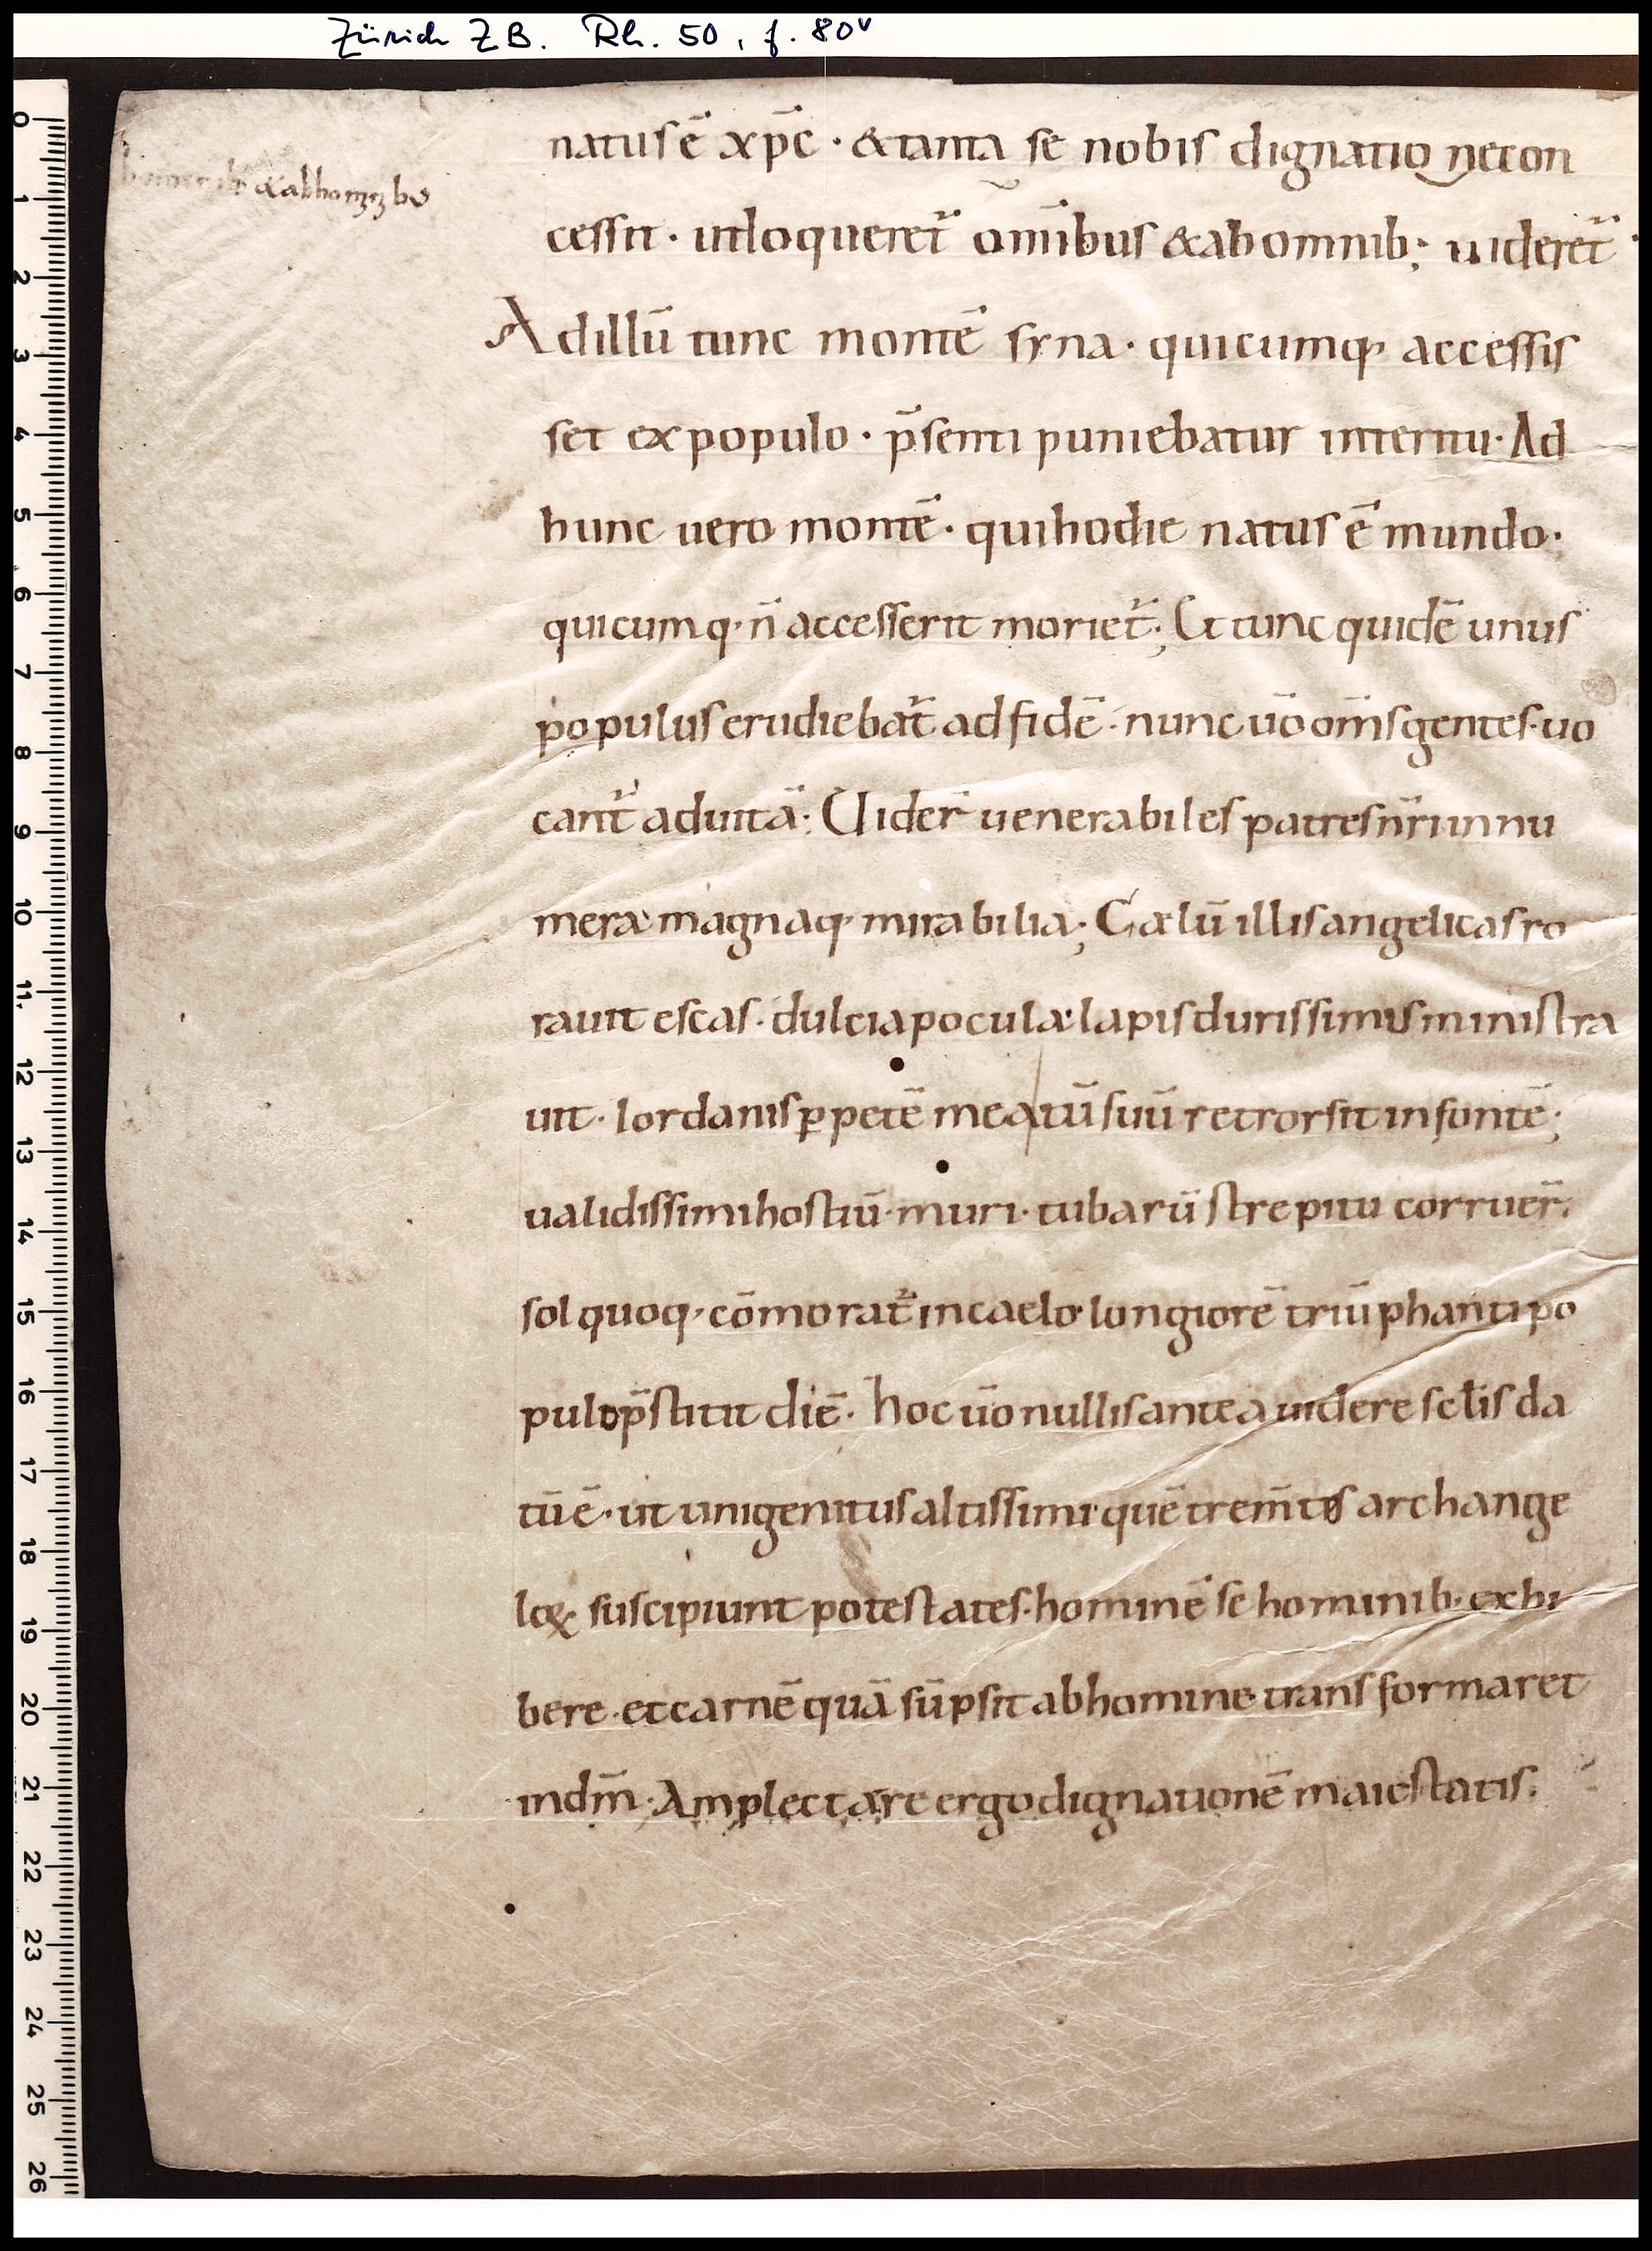 Zürich ZB. Rh. 50, f. 80v
&abhom
natus ē xp̄c · &tanta se nobis dignatio necon
cessit · utloqueret᷑ om̄ibus &abomnib; uideret᷑
Adillū tunc montē syna · quicumq· accessis
set expopulo · p̄senti puniebatur interitu · Ad
hunc uero montē · quihodie natus ē mundo ·
quicumq· n̄ accesserit moriet᷑; Et tunc quidē unus
populus erudiebat᷑ ad fidē · nunc ūo om̄s gentes · uo
cant᷑ aduitā; Uider̄ uenerabiles patres nr̄i innu
mera magnaq· mirabilia; Cælū illis angelicas ro
rauit escas · dulcia pocula lapis durissimus ministra
uit · Iordanis ꝑpetē meatū suū retrorsit infontē;
ualidissimi hostiū muri · tubarū strepitu corruer̄.
sol quoq· cōmorat᷑ incaelo longiorē triūphanti po
pulo p̄stitit diē · hoc ūo nullis antea uidere sc̄lis da
tū ē · ut unigenitus altissimi quē trem̄tes archange
lọꝝ suscipiunt potestates · hominē se hominib· exhi
bere · et carnē quā sūpsit abhomine transformaret
indm̄ · Amplectare ergo dignationē maiestatis.
0
1
2
3
4
5
6
7
8
9
10
11.
12
13
14
15
16
17
18
19
20
21
22
23
24
25
26